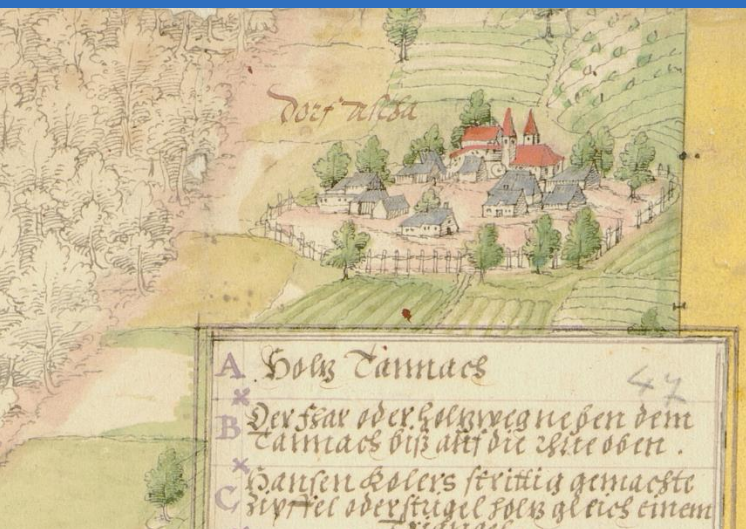 Dorf
47
A Holtz Tannach
B Der Fhar oder holtzweg neben dem
Tannach biß auff die oben .
C Hansen Kolers strittig gemachte
Zipffel oder stigel holtz gleich einem